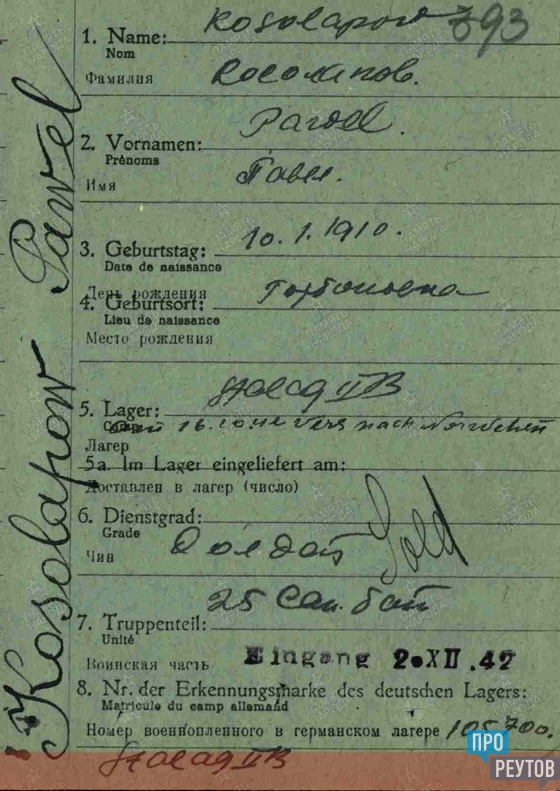 Kosolapow 393
1. Name:
Nom
Фамилия Косолапов.
Pawel.
2. Vornamen:
Prénoms
Имя Павел.
3. Geburtstag: 10.1.1910.
Date de naissance
День рождения
4. Geburtsort:
Lieu de naissance
Место рождения
Stalag II B
5. Lager:
16.10.42 Vers nach Norwehen
Лагер
5a. Im Lager eingeliefert am:
Доставлен в лагер (число)
6. Dienstgrad:
Grade
Чин Солдат Sold
25 Сан. бат
7. Truppenteil:
Unité
Воинская часть Eingang 2. XII. 42
8. Nr. der Erkennungsmarke des deutschen Lagers:
Matricule du camp allemand
Номер военнопленного в германском лагере 105700.
Stalag II B
Kosolapow Pawel
ПРО
РЕУТОВ